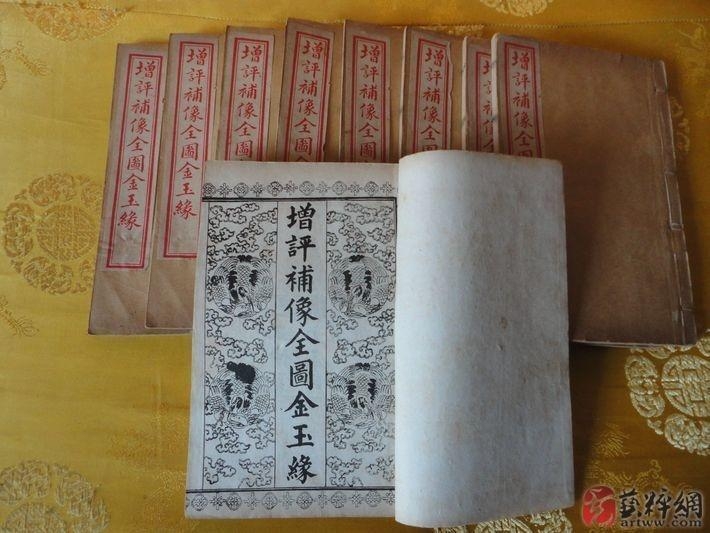 增評補像全圖金玉緣
增評補像全圖金玉緣
增評補像全圖金
增評補像全圖金
增評補像全圖
增評補像全圖
增評補像全
增評補像全圖
增評補像全圖金玉緣
藝粹網
artww.com